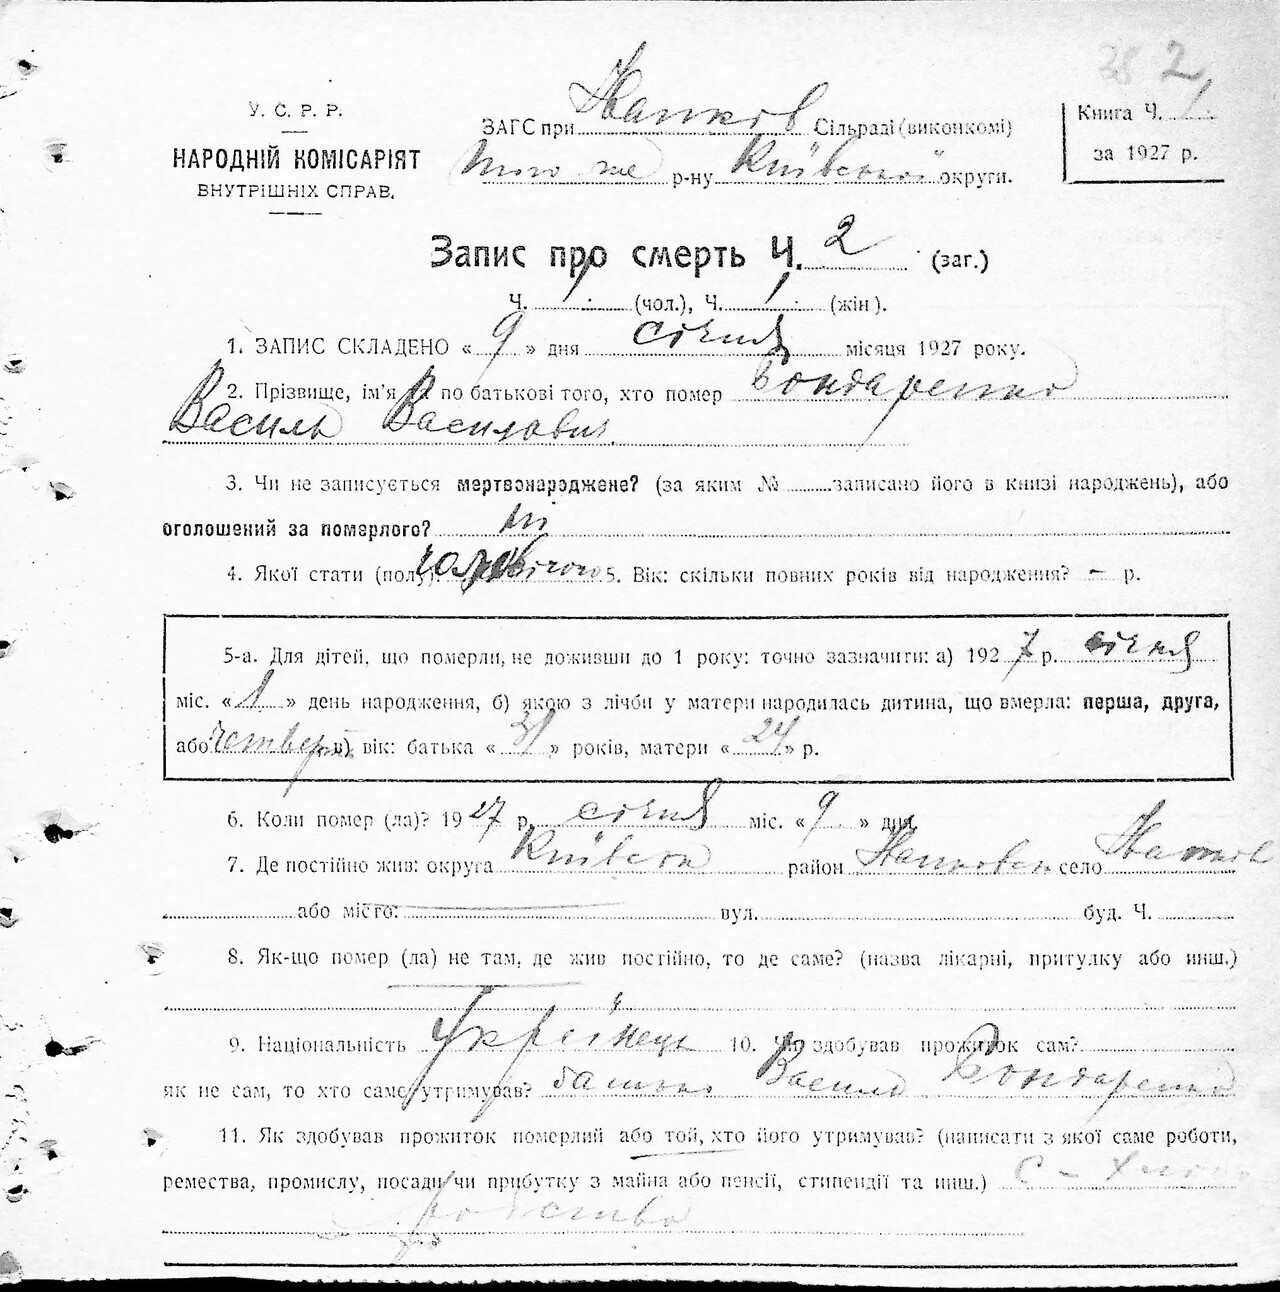 2
У. С. Р. Р.
НАРОДНІЙ КОМІСАРІЯТ
ВНУТРІШНІХ СПРАВ.
ЗАГС при Сільраді (виконкомі)
того же р-ну Київської округи.
Книга Ч. 1.
за 1927 р.
Запис про смерть Ч. 2 (заг.)
Ч. 1. (чол.), Ч. 1. (жін).
1. ЗАПИС СКЛАДЕНО « 9 » дня січня місяця 1927 року.
2. Прізвище, ім'я й по батькові того, хто помер Бондаренко
Василь Василович
3. Чи не записується мертвонароджене? (за яким № записано його в книзі народжень), або
оголошений за померлого? ні
4. Якої стати (полу) чоловічого 5. Вік: скільки повних років від народження? – р.
5-а. Для дітей, що померли, не доживши до 1 року: точно зазначити: а) 1927 р. січня
міс. « 1 » день народження, б) якою з лічби у матери народилась дитина, що вмерла: перша, друга,
або четверта в) вік: батька « 31 » років, матери « 24 » р.
6. Коли помер (ла)? 1927 р. січня міс. « 9 » дня.
7. Де постійно жив: округа Київськ район село
або місто: вул. буд. Ч.
8. Як-що помер (ла) не там, де жив постійно, то де саме? (назва лікарні, притулку або инш.)
9. Національність Українець 10. Чи здобував прожиток сам?
як не сам, то хто саме утримував? батько Василь Бондаренко
11. Як здобував прожиток померлий або той, хто його утримував? (написати з якої саме роботи,
ремества, промислу, посади чи прибутку з майна або пенсії, стипендії та инш.) с-